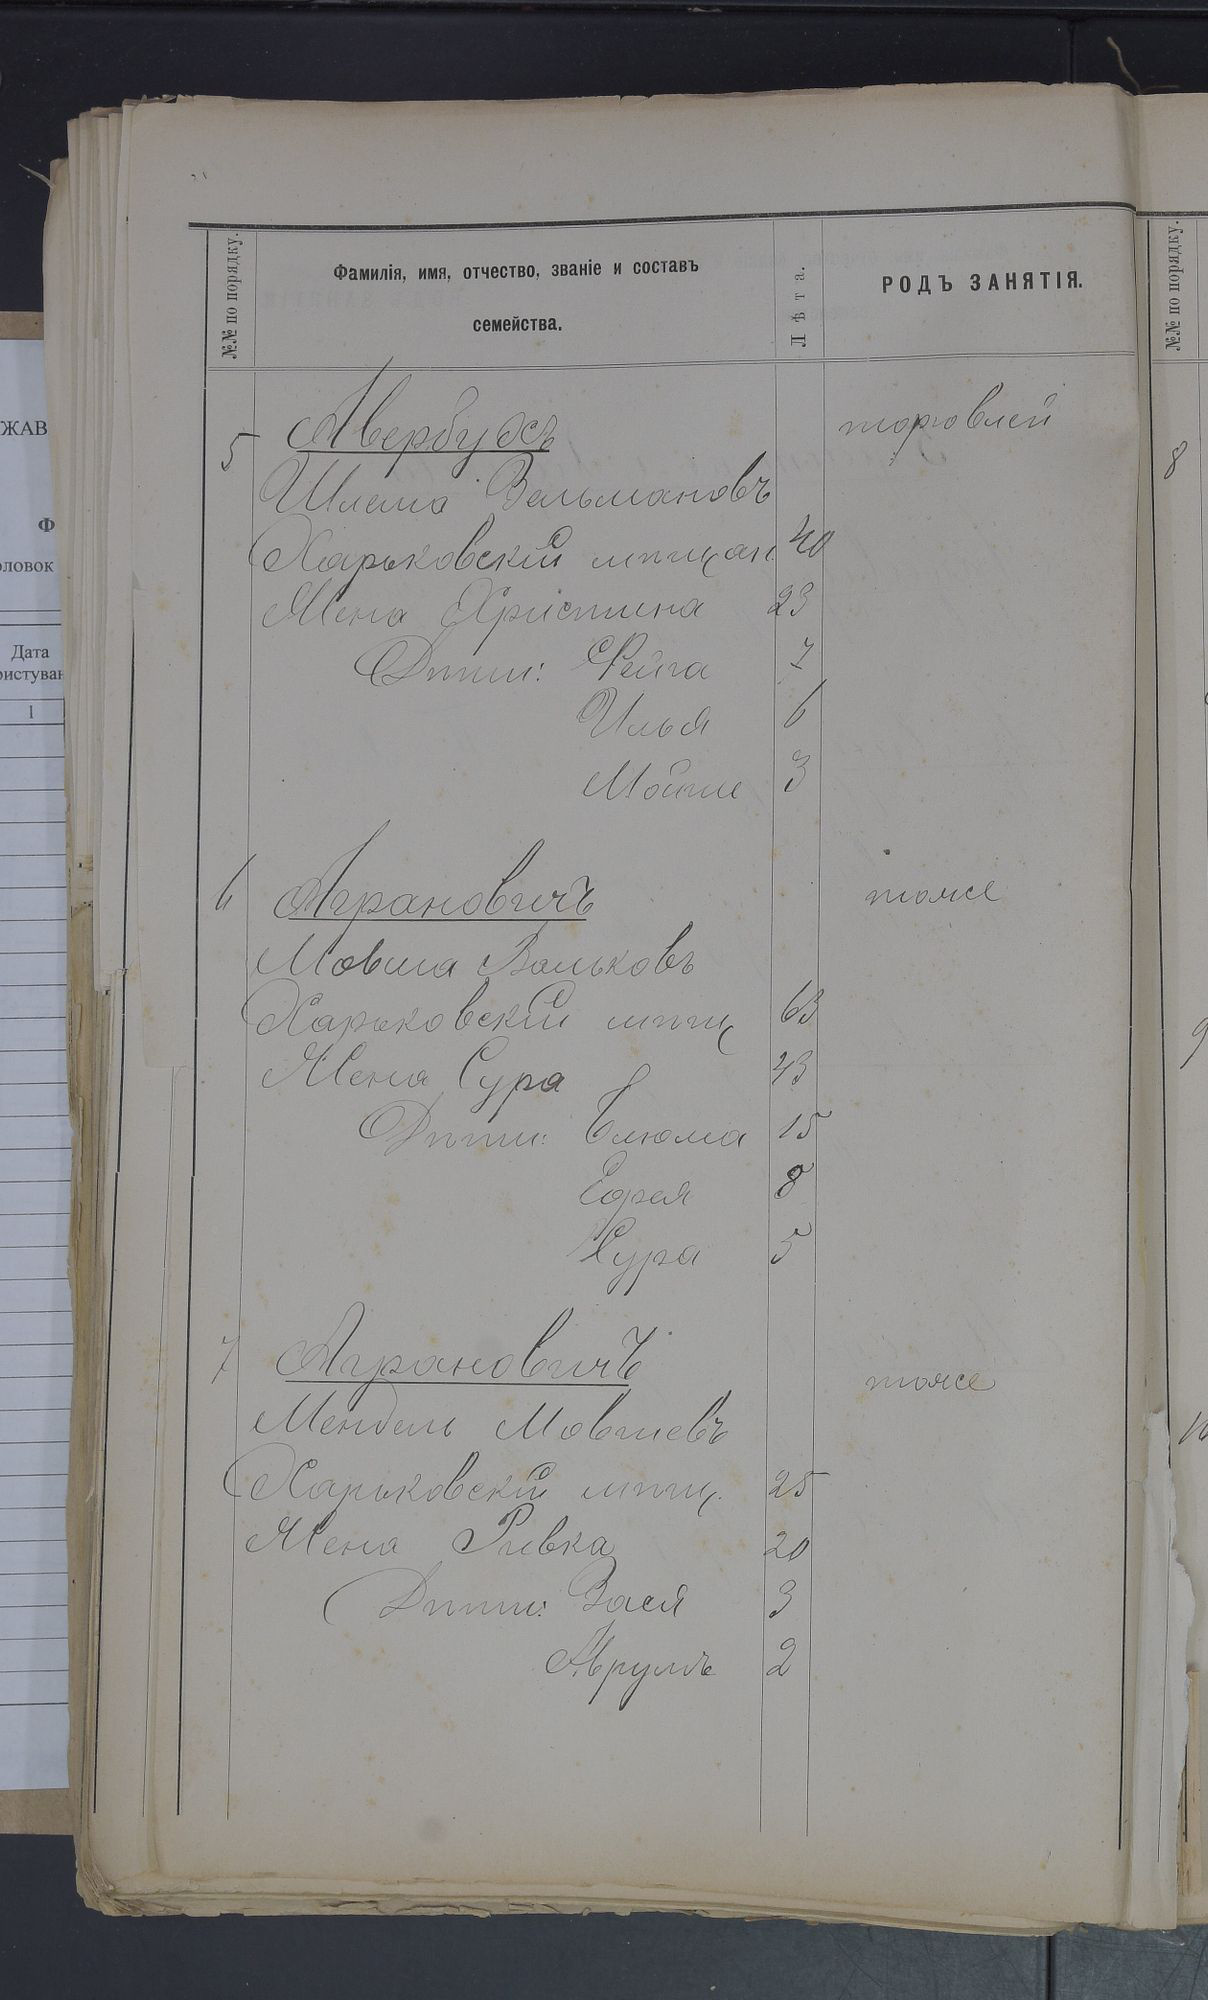 №№ по порядку.
Фамилія, имя, отчество, званіе и составъ
семейства.
Лѣта.
РОДЪ ЗАНЯТІЯ.
№№ по порядку.
5 Авербухъ торговлей
Шлема Зельмановъ
Харьковскій мѣщан. 40
Жена Христина 23
Дѣти: Фейга 7
Илья 6
Мойше 3
6 Аграновичъ тоже
Мовша Вольковъ
Харьковскій мѣщ 63
Жена Сура 43
Дѣти: Блюма 15
8
Сура 5
7 Аграновичъ тоже
Мендель Мовшевъ
Харьковскій мѣщ. 25
Жена Ривка 20
Дѣти: Зася 3
Аврумъ 2
8
9
10
ЖАВ
Ф
оловок
Дата
ристуван
1